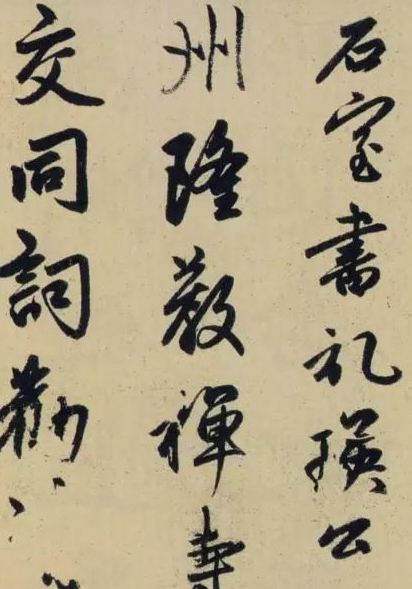 石室書記瑛公
州隆教禪寺
交同詞勸